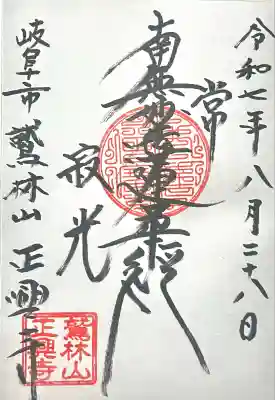 令和七年八月二十八日
常
南無妙法蓮華経
寂光
岐阜市 鷲林山 正興寺
鷲林山
正興寺